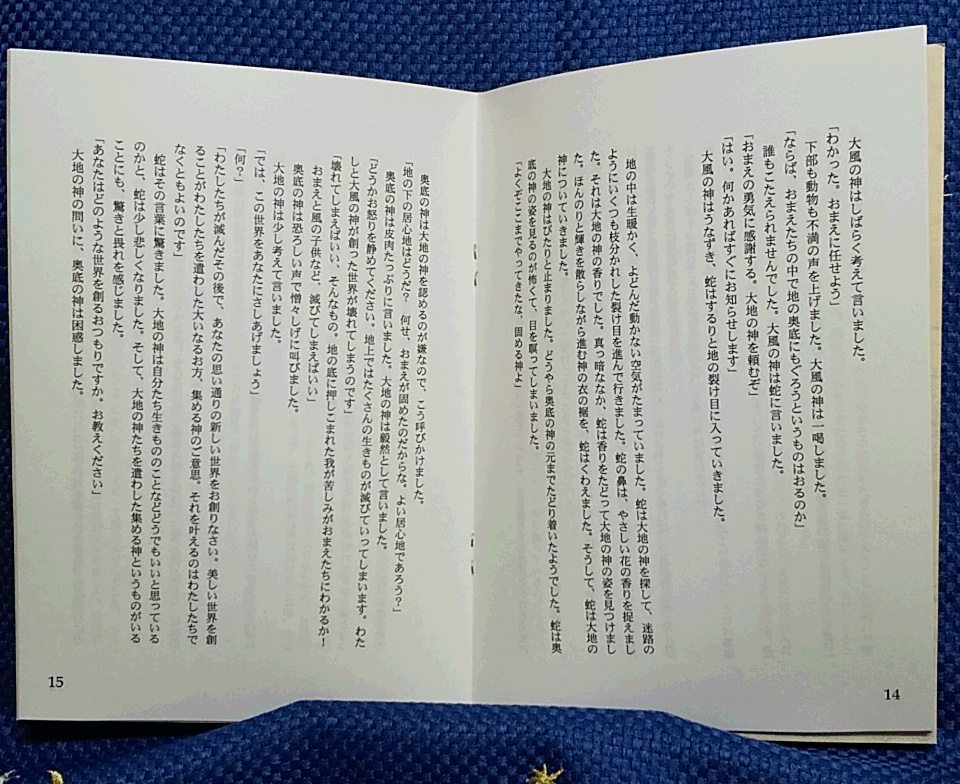 大風の神はしばらく考えて言いました。
「わかった。おまえに任せよう」
下部も動物も不満の声を上げました。大風の神は一喝しました。
「ならば、おまえたちの中で地の奥底にもぐろうというものはおるのか」
誰もこたえられませんでした。大風の神は蛇に言いました。
「おまえの勇気に感謝する。大地の神を頼むぞ」
「はい。何かあればすぐにお知らせします」
大風の神はうなずき、蛇はするりと地の裂け目に入っていきました。
地の中は生暖かく、よどんだ動かない空気がたまっていました。蛇は大地の神を探して、迷路の
ようにいくつも枝分かれした裂け目を進んで行きました。蛇の鼻は、やさしい花の香りを捉えまし
た。それは大地の神の香りでした。真っ暗ななか、蛇は香りをたどって大地の神の姿を見つけまし
た。ほんのりと輝きを散らしながら進む神の衣の裾を、蛇はくわえました。そうして、蛇は大地の
神についていきました。
大地の神はぴたりと止まりました。どうやら奥底の神の元までたどり着いたようでした。蛇は奥
底の神の姿を見るのが怖くて、目を瞑ってしまいました。
「よくぞここまでやってきたな、固める神よ」
14
奥底の神は大地の神を認めるのが嫌なので、こう呼びかけました。
「地の下の居心地はどうだ？　何せ、おまえが固めたのだからな。よい居心地であろう？」
奥底の神は皮肉たっぷりに言いました。大地の神は毅然として言いました。
「どうかお怒りを静めてください。地上ではたくさんの生きものが滅びていってしまいます。わた
しと大風の神が創った世界が壊れてしまうのです」
「壊れてしまえばいい、そんなもの。地の底に押しこまれた我が苦しみがおまえたちにわかるか！
おまえと風の子供など、滅びてしまえばいい」
奥底の神は恐ろしい声で憎々しげに叫びました。
大地の神は少し考えて言いました。
「では、この世界をあなたにさしあげましょう」
「何？」
「わたしたちが滅んだその後で、あなたの思い通りの新しい世界をお創りなさい。美しい世界を創
ることがわたしたちを遣わした大いなるお方、集める神のご意思。それを叶えるのはわたしたちで
なくともよいのです」
蛇はその言葉に驚きました。大地の神は自分たち生きもののことなどどうでもいいと思っている
のかと、蛇は少し悲しくなりました。そして、大地の神たちを遣わした集める神というものがいる
ことにも、驚きと畏れを感じました。
「あなたはどのような世界を創るおつもりですか。お教えください」
大地の神の問いに、奥底の神は困惑しました。
15